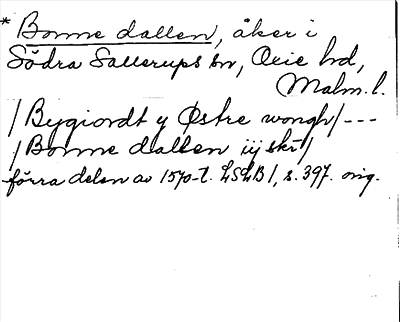 * Bonne dallen, åker i
Södra Sallerups sn, Oxie hd,
Malm. l.
/Bygiordt y Østre wongh/---
/Bonne dallen iij skr/
förra delen av 1570-t. LSLB 1, s. 397. orig.